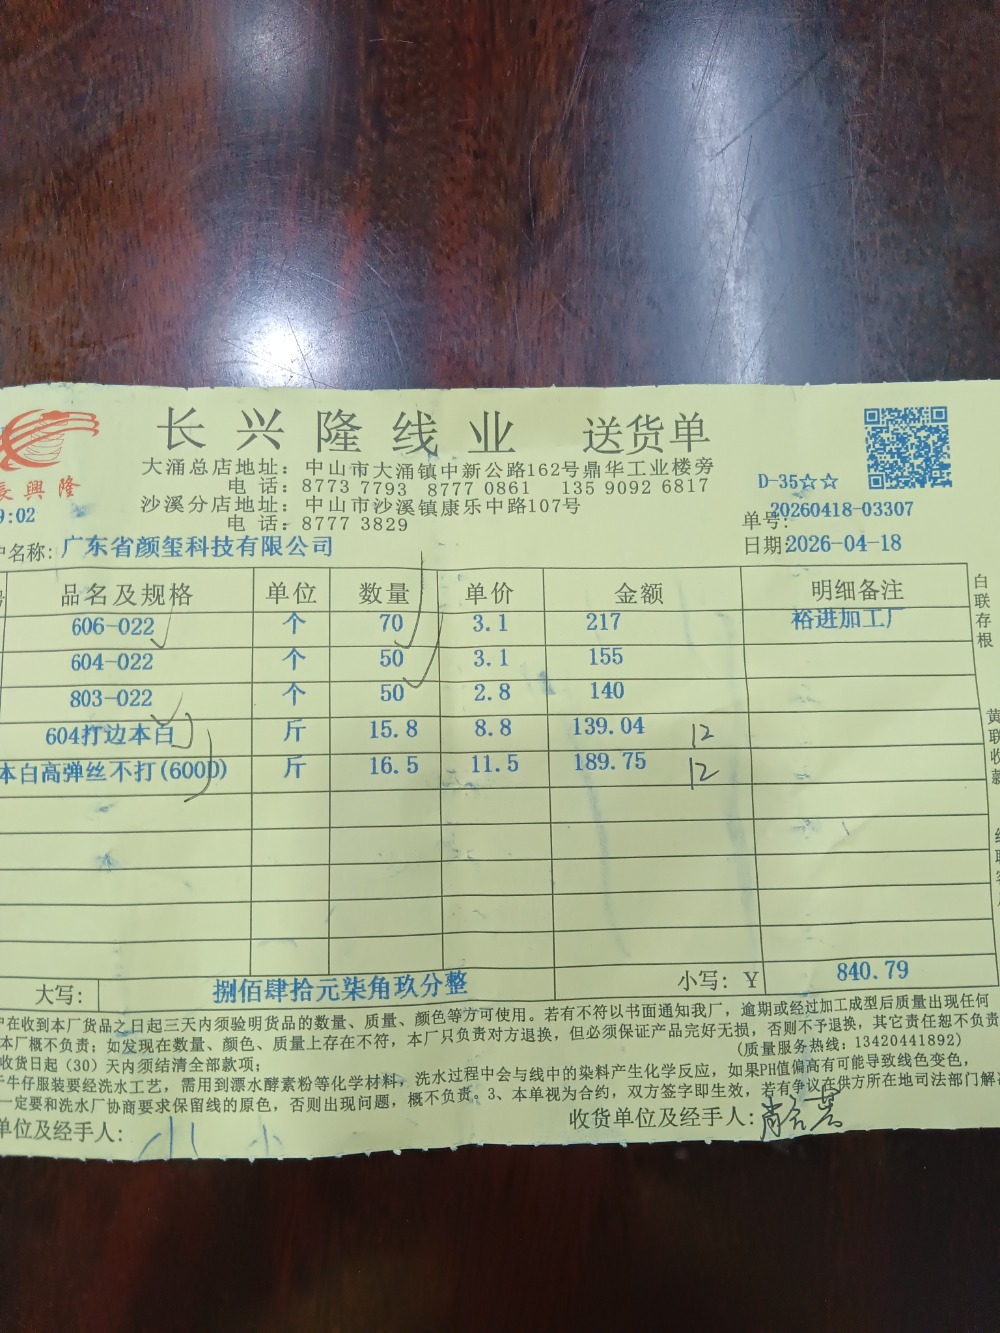 长兴隆线业 送货单
長興隆
大涌总店地址：中山市大涌镇中新公路162号鼎华工业楼旁
电 话：8773 7793 8777 0861 135 9092 6817
沙溪分店地址：中山市沙溪镇康乐中路107号
电 话：8777 3829
D-35☆☆
9:02
单号：20260418-03307
户名称：广东省颜玺科技有限公司
日期：2026-04-18
品名及规格 单位 数量 单价 金额 明细备注
606-022 个 70 3.1 217 裕进加工厂
604-022 个 50 3.1 155
803-022 个 50 2.8 140
604打边本白 斤 15.8 8.8 139.04 12
本白高弹丝不打(600D) 斤 16.5 11.5 189.75 12
大写： 捌佰肆拾元柒角玖分整 小写：Y 840.79
户在收到本厂货品之日起三天内须验明货品的数量、质量、颜色等方可使用。若有不符以书面通知我厂，逾期或经过加工成型后质量出现任何
本厂概不负责；如发现在数量、颜色、质量上存在不符，本厂只负责对方退换，但必须保证产品完好无损，否则不予退换，其它责任恕不负责
收货日起（30）天内须结清全部款项；
(质量服务热线：13420441892)
牛仔服装要经洗水工艺，需用到漂水酵素粉等化学材料，洗水过程中会与线中的染料产生化学反应，如果PH值偏高有可能导致线色变色，
一定要和洗水厂协商要求保留线的原色，否则出现问题，概不负责。3、本单视为合约，双方签字即生效，若有争议在供方所在地司法部门解决
单位及经手人：
收货单位及经手人：
白联存根
黄联收款